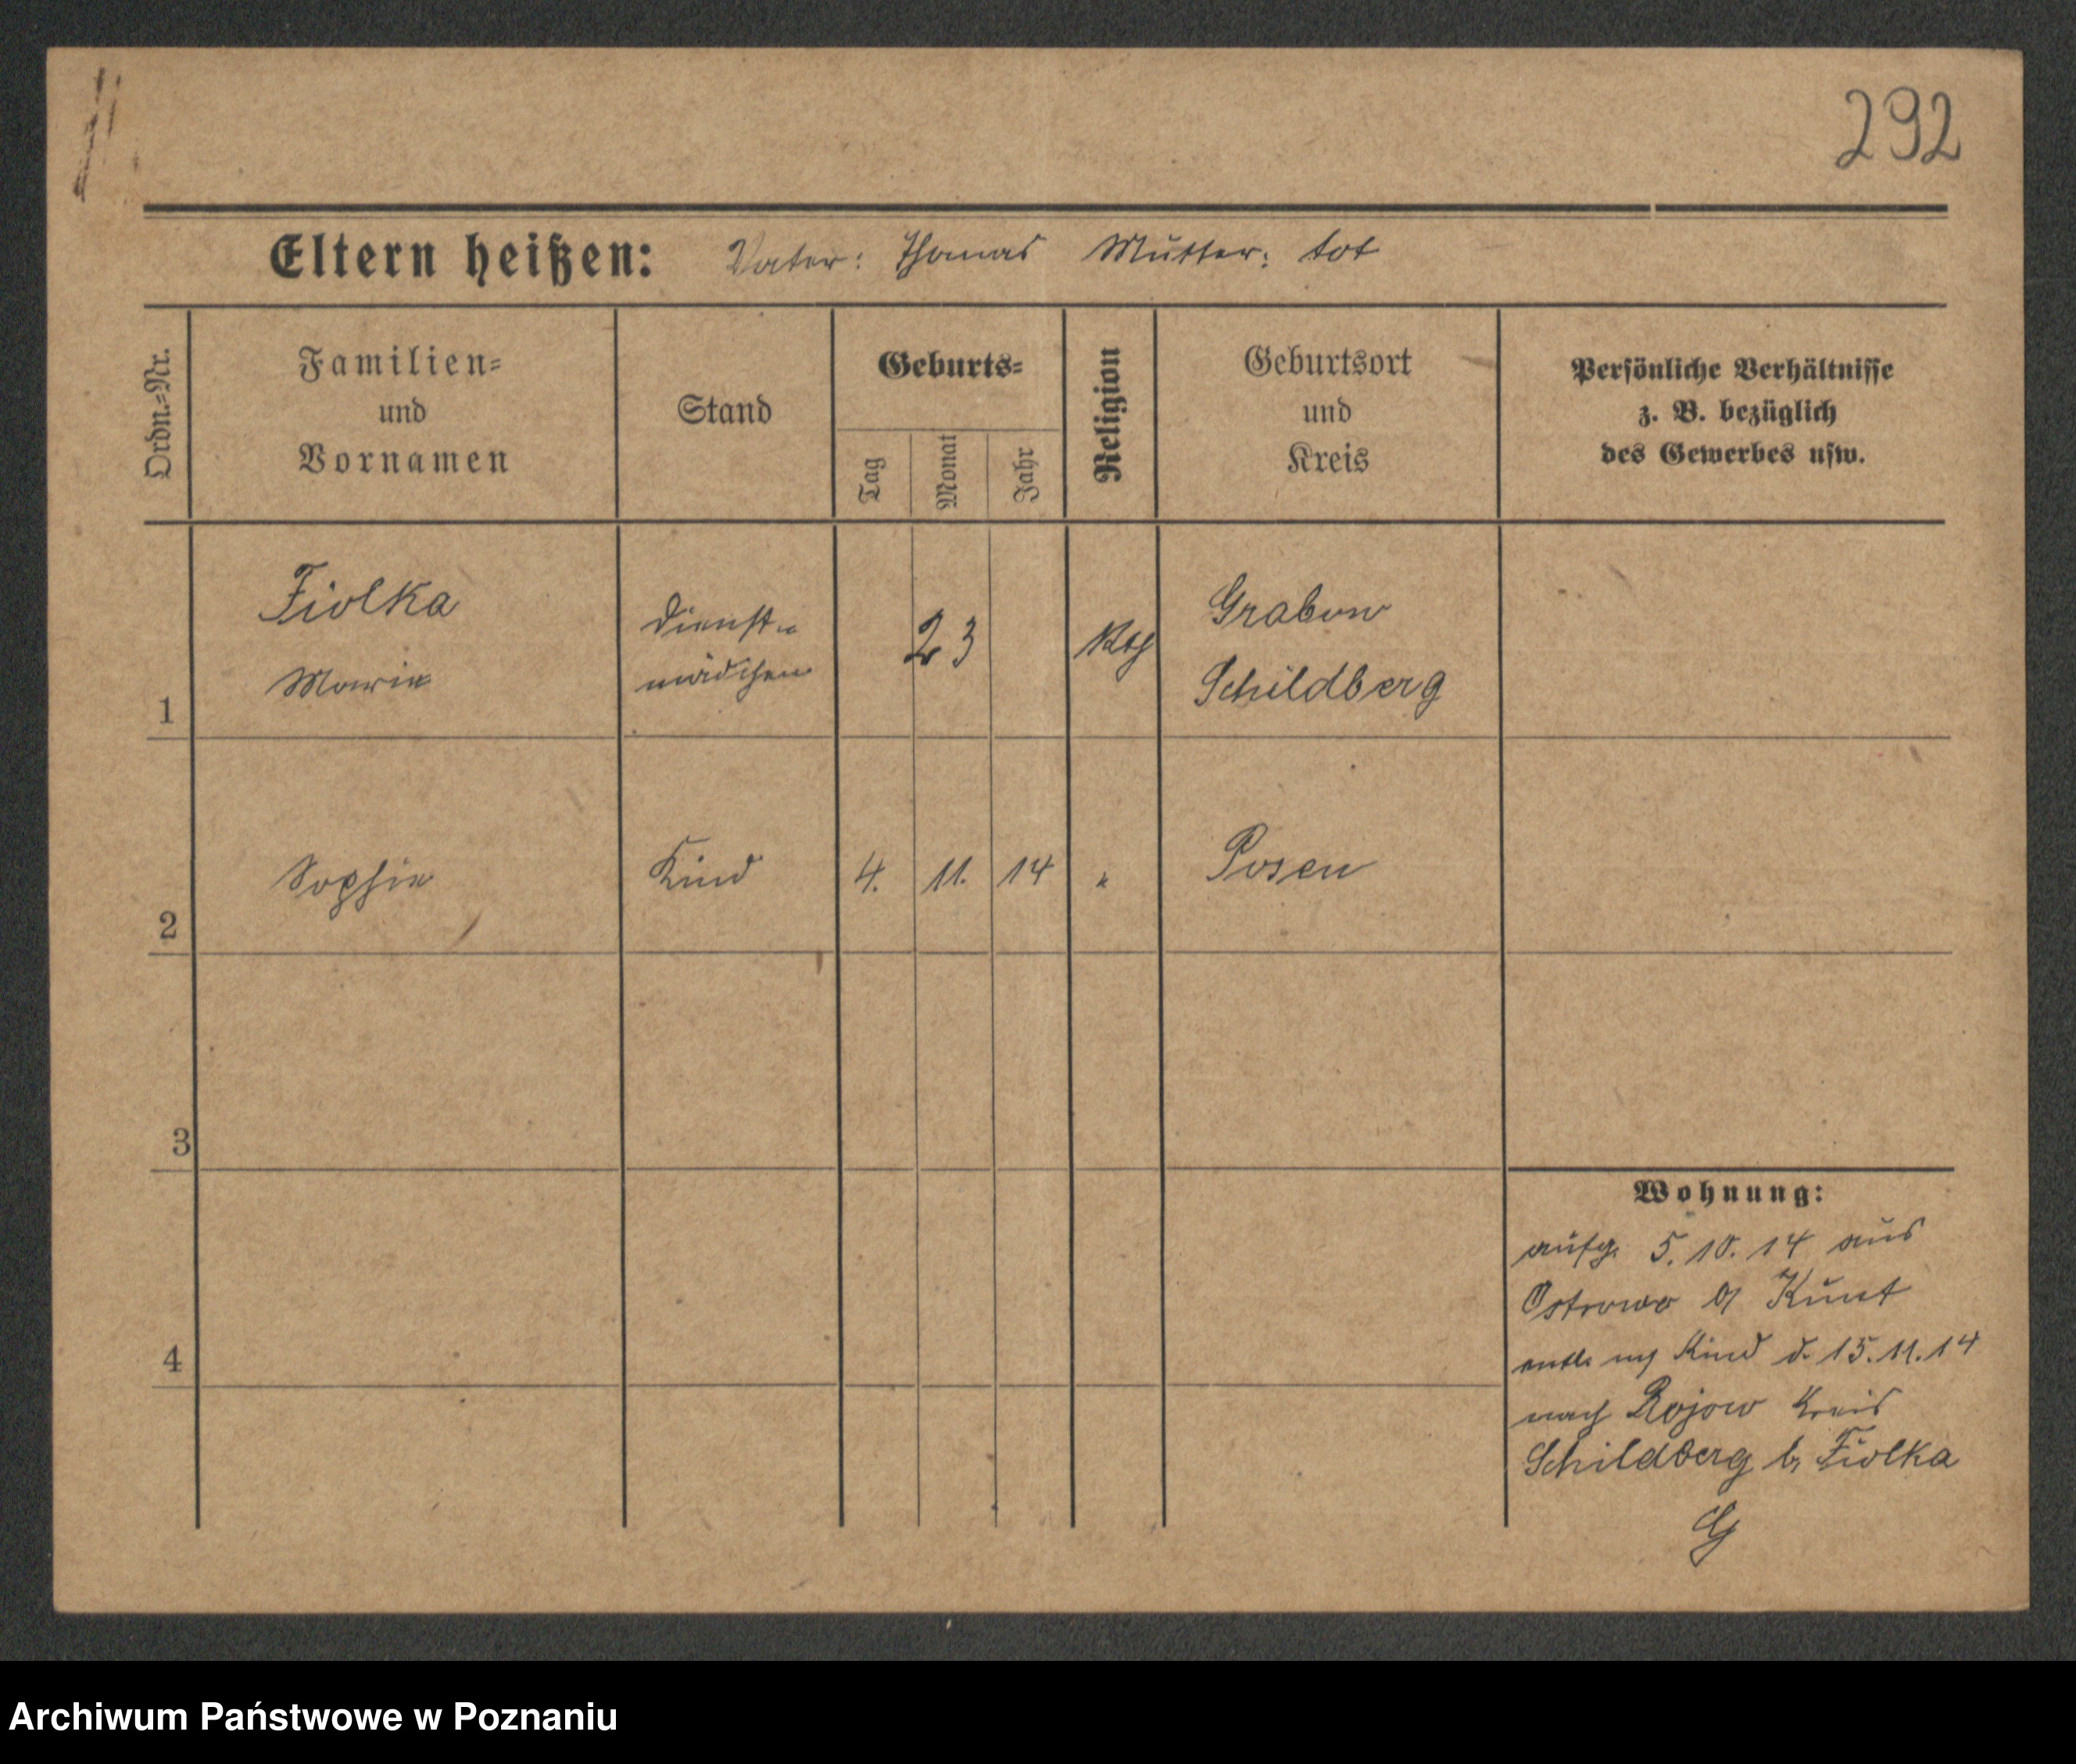 292
Eltern heißen: Vater: Thomas Mutter: tot
Ordn.-Nr.
Familien-
und
Vornamen
Stand
Geburts-
Tag
Monat
Jahr
Religion
Geburtsort
und
Kreis
Persönliche Verhältnisse
z. B. bezüglich
des Gewerbes usw.
1
Fiolka
Marie
Dienst-
mädchen
23
Kth
Grabow
Schildberg
2
Sophie
Kind
4. 11. 14
"
Posen
3
4
Wohnung:
aufg. 5. 10. 14 aus
Ostrowo
Kind d. 15. 11. 14
nach Rojow Kreis
Schildberg b. Fiolka
Archiwum Państwowe w Poznaniu